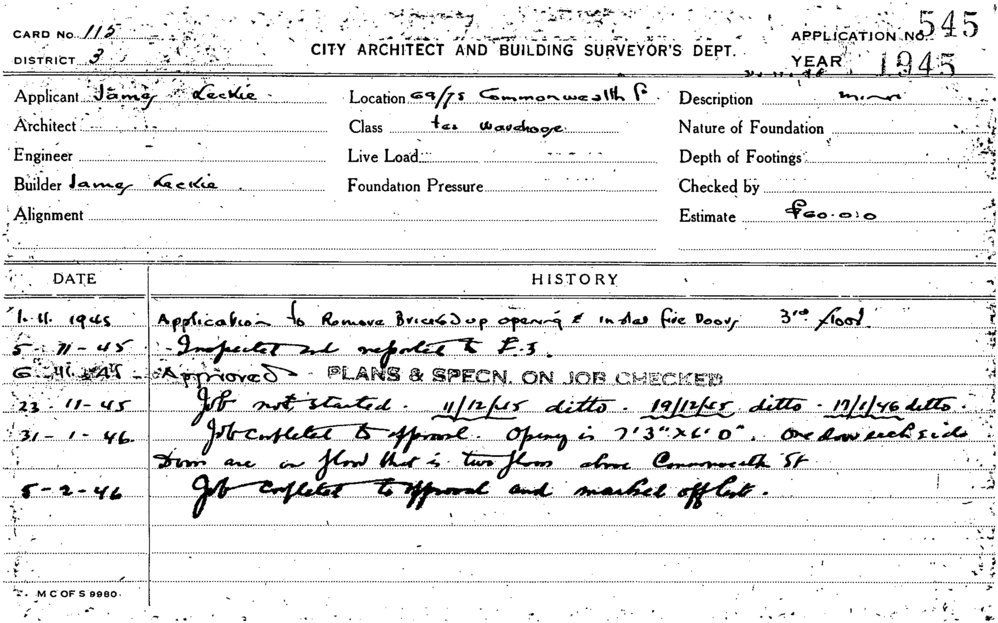 CARD No. 115
DISTRICT 3
CITY ARCHITECT AND BUILDING SURVEYOR'S DEPT.
APPLICATION No. 545
YEAR 1945
Applicant James Leckie Location 69/75 Commonwealth St Description minor
Architect Class Nature of Foundation
Engineer Live Load Depth of Footings
Builder James Leckie Foundation Pressure Checked by
Alignment Estimate £60.0.0
DATE HISTORY
1.11.1945 Application to Remove Bricked up opening & install fire Doors 3rd floor.
5-11-45 Inspected and reported to E.S.
6-11-45 Approved PLANS & SPECN. ON JOB CHECKED
23-11-45 Job not started. 11/12/45 ditto. 19/12/45 ditto. 17/1/46 ditto.
31-1-46. Job completed to approval. Opening is 7'3" x 6'0". One door each side
Doors are on floor that is two floors above Commonwealth St
5-2-46 Job completed to approval and marked off list.
M C OF S 9980